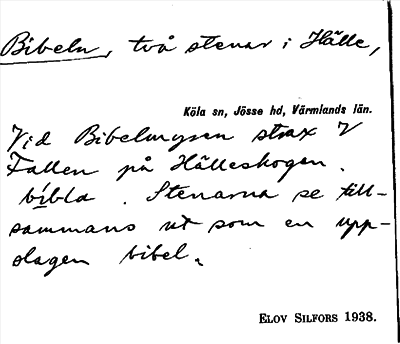 Bibeln, två stenar i Hälle,
Köla sn, Jösse hd, Värmlands län.
Vid Bibelmyren strax V
Fallen på Hälleskogen.
bíbla. Stenarna se till-
sammans ut som en upp-
slagen bibel.
ELOV SILFORS 1938.